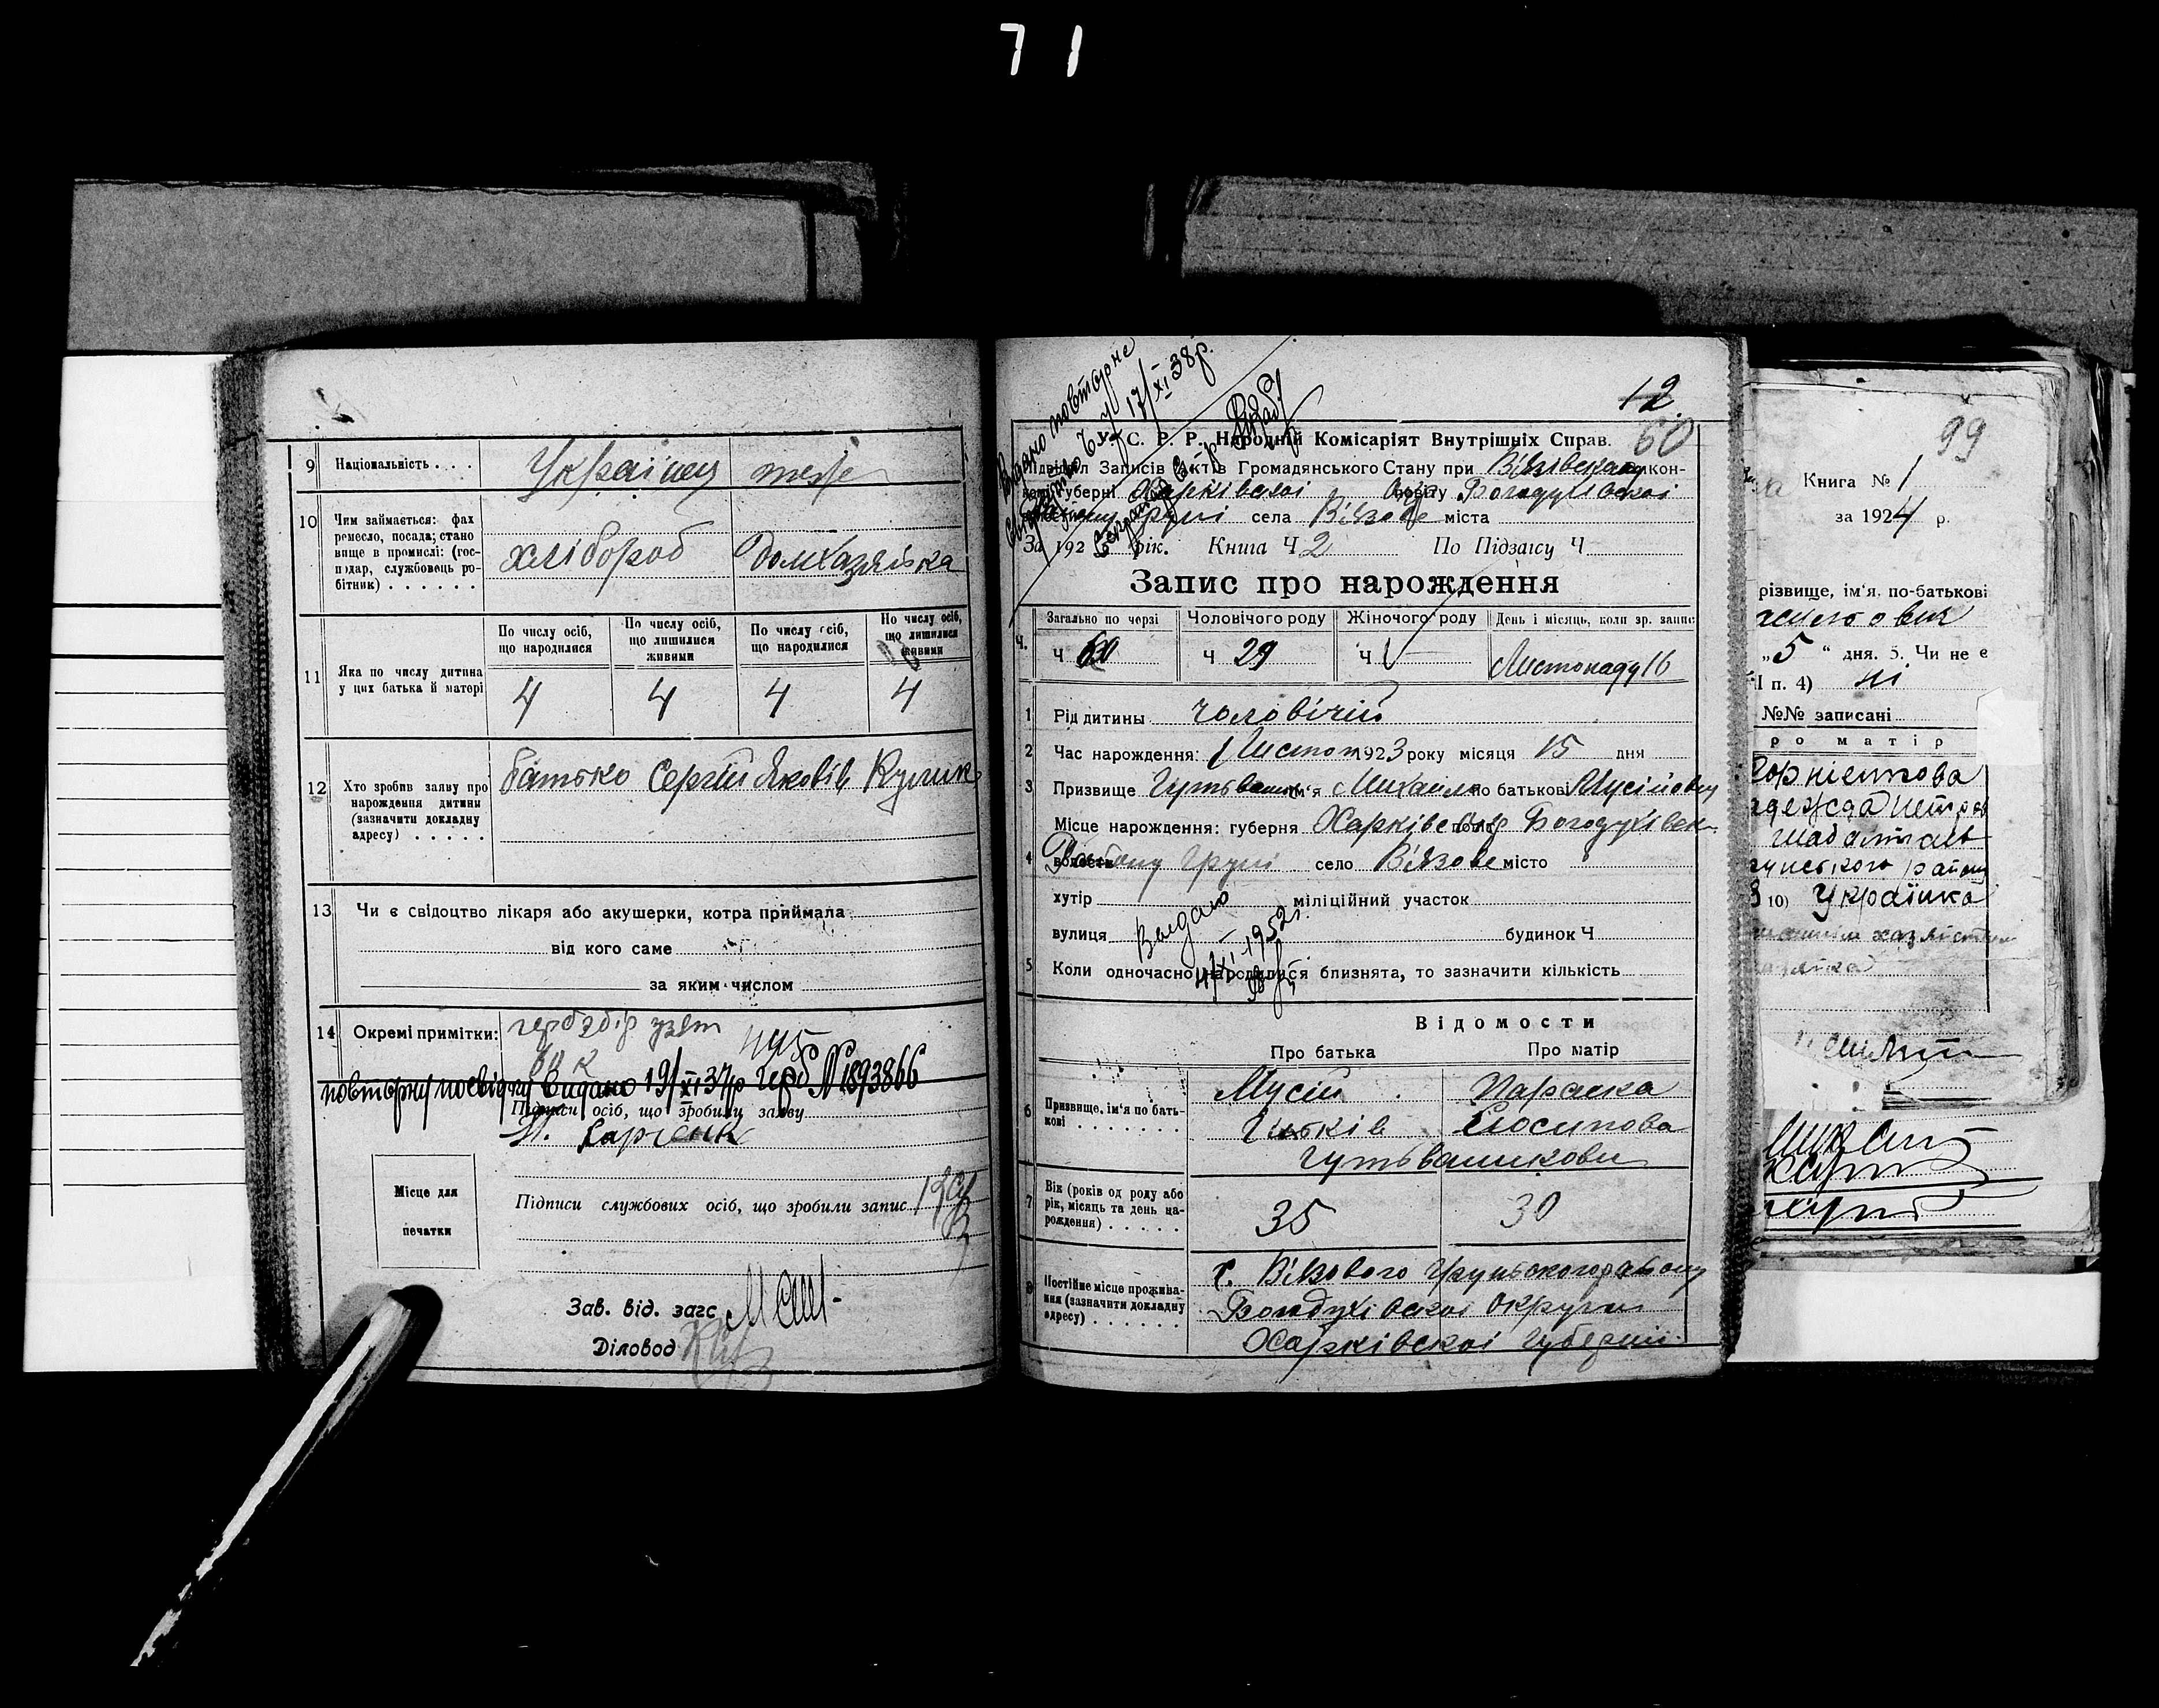 7 1
9 Національність . . . Українец теж
10 Чим займається: фах
ремесло, посада; стано
вище в промислі: (гос-
подар, службовець ро-
бітник) . . . . . .
хлібороб домхазяйка
11 Яка по числу дитина
у цих батька й матері
По числу осіб,
що народилися
По числу осіб,
що лишилися
живими
По числу осіб,
що народилися
По числу осіб,
що лишилися
живими
4 4 4 4
12 Хто зробив заяву про
нарождення дитини
(зазначити докладну
адресу) . . . . .
батько Сергій Яковів Кулик
13 Чи є свідоцтво лікаря або акушерки, котра приймала
від кого саме
за яким числом
14 Окремі примітки: герб збір узят
повторну посвідку видано 19/XI 37р Герб № 1893866
Підписи осіб, що зробили заяву
Місце для
печатки
Підписи службових осіб, що зробили запис
Зав. від. загс
Діловод
Видано повторне
свідоцтво 17/XI 38р.
12
60
У. С. Р. Р. Народній Комісаріят Внутрішніх Справ.
Підвідділ Записів Актів Громадянського Стану при Вязівському викон-
комі Губерні Харківскоі повіту Богодухівскоі
Груні села Вязове міста
За 1923 рік. Книга Ч 2 По Підзагсу Ч
Запис про нарождення
Ч. Загально по черзі Чоловічого роду Жіночого роду День і місяць, коли зр. запис
Ч 60 Ч 29 Ч Листопаду 16
1 Рід дитины чоловічий
2 Час нарождення: Листоп 1923 року місяця 15 дня
3 Призвище ім'я Михаил по батькові Мусійович
Місце нарождення: губерня Харківська повіт Богодухівск
4 волость Району Груні село Вязове місто
хутір міліційний участок
вулиця будинок Ч
Видано
4/XI-1952
5 Коли одночасно народилися близнята, то зазначити кількість
Відомости
Про батька Про матір
6 Призвище, ім'я по бать-
кові . . . . . . .
Мусій Параска
Йосипова
7 Вік (років од роду або
рік, місяць та день на-
рождення) . . . . .
35 30
8 Постійне місце прожива-
ння (зазначити докладну
адресу) . . . . . .
с. Вязового Грунського району
Богодухівскоі округи
Харківскоі губерніі
99
Книга № 1
за 1924 р.
різвище, ім'я, по-батькові
„ 5 " дня. 5. Чи не є
п. 4) ні
№№ записані
ро матір
10) Українка